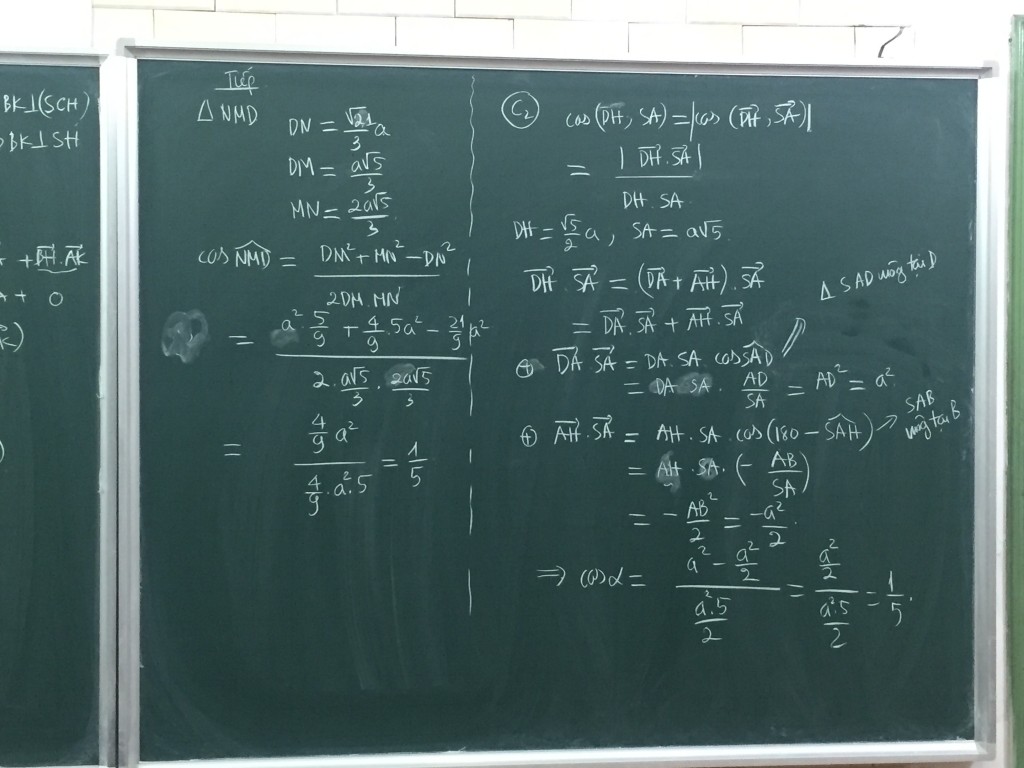 BK⊥(SCH)
BK⊥SH
+ \overrightarrow{DH}.\overrightarrow{AK}
+ 0
Tiếp
Δ NMD
DN = \frac{\sqrt{21}}{3}a
DM = \frac{a\sqrt{5}}{3}
MN = \frac{2a\sqrt{5}}{3}
cos \widehat{NMD} = \frac{DM^2 + MN^2 - DN^2}{2DM.MN}
= \frac{a^2.\frac{5}{9} + \frac{4}{9}.5a^2 - \frac{21}{9}a^2}{2.\frac{a\sqrt{5}}{3}.\frac{2a\sqrt{5}}{3}}
= \frac{\frac{4}{9}a^2}{\frac{4}{9}.a^2.5} = \frac{1}{5}
C2
cos(DH, SA) = |cos(\overrightarrow{DH}, \overrightarrow{SA})|
= \frac{|\overrightarrow{DH}.\overrightarrow{SA}|}{DH.SA}
DH = \frac{\sqrt{5}}{2}a, SA = a\sqrt{5}.
\overrightarrow{DH}.\overrightarrow{SA} = (\overrightarrow{DA} + \overrightarrow{AH}).\overrightarrow{SA}
Δ SAD vuông tại D
= \overrightarrow{DA}.\overrightarrow{SA} + \overrightarrow{AH}.\overrightarrow{SA}
⊕ \overrightarrow{DA}.\overrightarrow{SA} = DA.SA.cos\widehat{SAD}
= DA.SA.\frac{AD}{SA} = AD^2 = a^2
⊕ \overrightarrow{AH}.\overrightarrow{SA} = AH.SA.cos(180 - \widehat{SAH}) → SAB vuông tại B
= AH.SA.(-\frac{AB}{SA})
= -\frac{AB^2}{2} = \frac{-a^2}{2}.
⇒ cosα = \frac{a^2 - \frac{a^2}{2}}{\frac{a^2.5}{2}} = \frac{\frac{a^2}{2}}{\frac{a^2.5}{2}} = \frac{1}{5}.